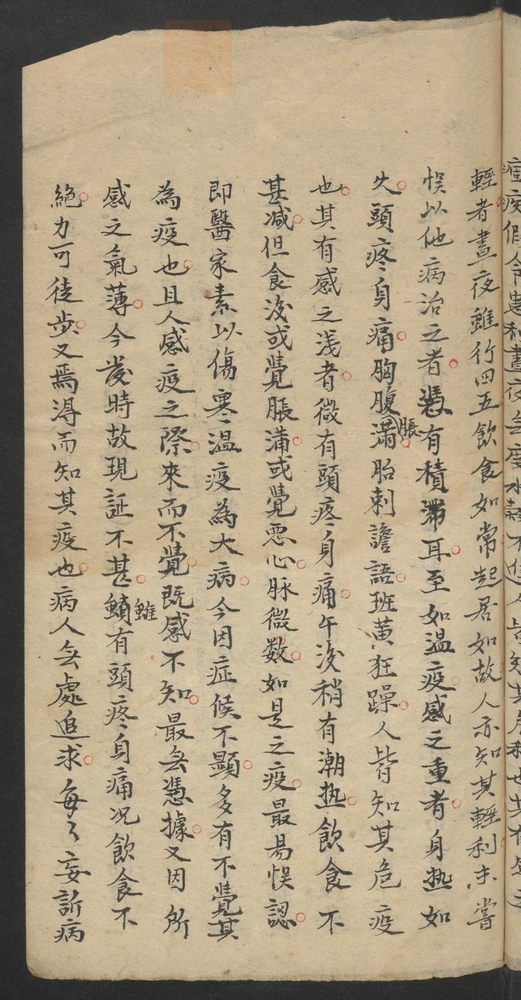 假令患利晝夜無度水穀不進人皆知其危利也其有感之
輕者晝夜雖行四五飲食如常起居如故人亦知其輕利未嘗
悮以他病治之者憑有積滯耳至如温疫感之重者身热如
火頭疼身痛胸腹脹滿胎刺譫語班黃狂躁人皆知其危疫
也其有感之浅者微有頭疼身痛午後稍有潮热飲食不
甚减但食後或覺脹滿或覺惡心脉微数如是之疫最易悮認
即醫家素以傷寒温疫為大病今因症候不顯多有不覺其
為疫也且人感疫之際來而不覺既感不知最無憑據又因所
感之氣薄今發時故現証不甚雖有頭疼身痛况飲食不
絶力可徒步又焉得而知其疫也病人無處追求每々妄訴病